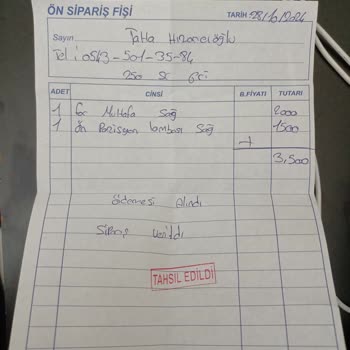 ÖN SİPARİŞ FİŞİ
TARİH 28/10/2024
Sayın Taha Hızarcıoğlu
Tel: 0543-501-35-84
250 SC
ADET CİNSİ B.FİYATI TUTARI
1 Far Muhafa Sağ 2000
1 ön Pozisyon lambası Sağ 1500
+
3,500
ödemesi Alındı
Sipariş verildi
TAHSİL EDİLDİ